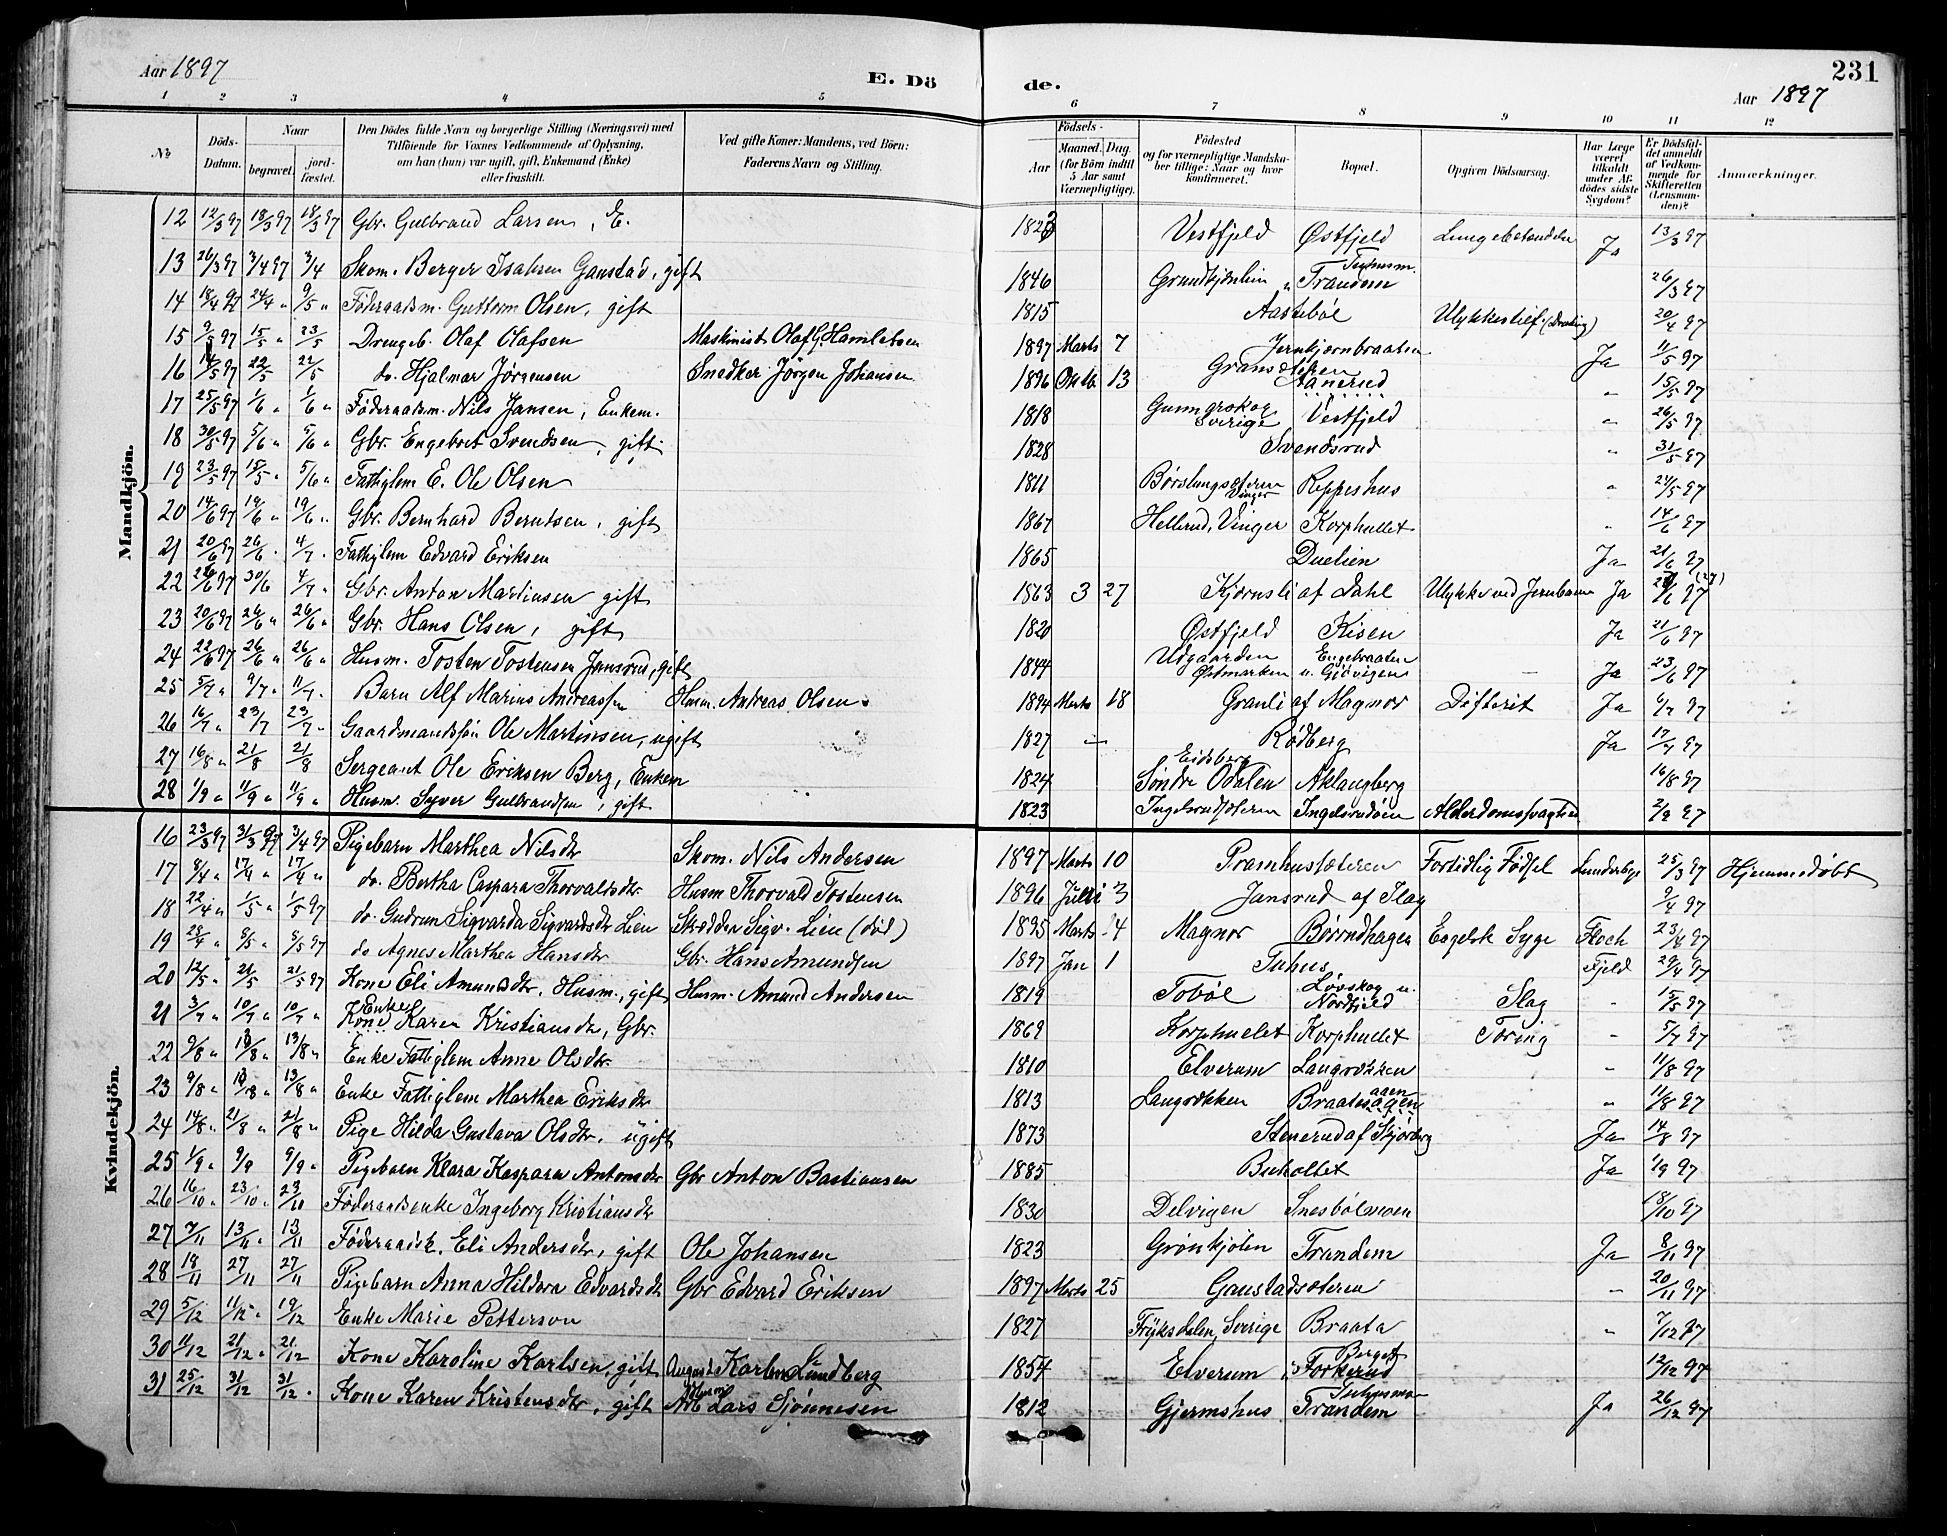 Aar 1897
E. Dö
de.
231
Aar 1897
1 2 3 4 5 6 7 8 9 10 11 12
No
Döds-Datum.
Naar
begravet.
jord-fæstet.
Den Dödes fulde Navn og borgerlige Stilling (Næringsvei) med
Tilföiende for Voxnes Vedkommende af Oplysning,
om han (hun) var ugift, gift, Enkemand (Enke)
eller fraskilt.
Ved gifte Koner: Mandens, ved Börn:
Faderens Navn og Stilling.
Födsels-
Aar
Maaned. Dag.
(for Börn indtil
5 Aar samt
Værnepligtige).
Födested
og for værnepligtige Mandska-
ber tillige: Naar og hvor
konfirmeret.
Bopæl.
Opgiven Dödsaarsag.
Har Læge
været
tilkaldt
under Af-
dödes sidste
Sygdom?
Er Dödsfal-
det anmeldt
af Vedkom-
mende for
Skifteretten
(Lensman-
den)?
Anmærkninger.
Mandkjön.
12 12/3 97 18/3 97 18/3 97 Gbr. Gulbrand Larsen, E. 1823 Vestfjeld Østfjeld Lungebetændelse Ja 13/3 97
13 26/3 97 3/4 97 3/4 Skom. Berger Isaksen Ganstad, gift 1846 Trandem 26/3 97
14 18/4 97 24/4 " 9/5 " Föderaadsm. Guttorm Olsen, gift 1815 Aastebøl Ulykkestilf. 20/4 97
15 9/5 97 15/5 " 23/5 Drengeb. Olaf Olafsen Maskinist Olaf G. Hamletsen 1897 Marts 7 Jernkjørnbraaten Ja 11/5 97
16 14/5 97 22/5 22/5 do. Hjalmar Jørgensen Snedker Jörgen Johansen 1896 Oktb. 13 Aanerud " 15/5 97
17 25/5 97 1/6 " 1/6 " Föderaadsm. Nils Jansen, Enkem. 1818 Gunnarskog Sverige Vestfjeld " 26/5 97
18 30/5 97 5/6 " 5/6 " Gbr. Engebret Svendsen, gift. 1828 Svendsrud " 31/5 97
19 23/5 97 15/5 " 5/6 " Fattiglem E. Ole Olsen 1811 Vinger Reppeshus " 24/5 97
20 14/6 97 19/6 " 19/6 " Gbr. Bernhard Berntsen, gift 1867 Hellerud, Vinger Korphullet " 14/6 97
21 20/6 97 26/6 . 4/7 . Fattiglem Edvard Eriksen 1865 Duelien Ja 21/6 97
22 26/6 97 30/6 4/7 " Gbr. Anton Martinsen gift 1863 3 27 Kjørnsli af Dahl Ulykke ved Jernbanen Ja 97
23 20/6 97 26/6 " 26/6 " Gbr. Hans Olsen, gift 1820 Østfjeld Kisen Ja 21/6 97
24 22/6 97 26/6 " 26/6 " Husm. Tosten Tostensen Jansrud, gift 1844 Udgaarden Østmarken Engebraaten u. Gjövigen — Ja 23/6 97
25 5/7 " 9/7 " 11/7 . Barn Alf Marius Andreassen Husm. Andreas Olsen 1894 Marts 18 Granli af Magnor Difterit Ja 6/7 97
26 16/7 " 23/7 23/7 " Gaardmandssön Ole Martinsen, ugift 1827 — Rødberg Ja 17/7 97
27 16/8 " 21/8 21/8 Sergeant Ole Eriksen Berg, Enkem 1824 Eidsberg Søndre Odalen Aklangberg 16/8 97
28 1/9 " 11/9 " 11/9 " Husm. Syver Gulbrandsen, gift 1823 Ingelsrudsæteren Ingelsrudöien Alderdomssvaghed 2/9 97
Kvindekjön.
16 23/3 97 31/3 97 3/4 97 Pigebarn Marthea Nilsdtr Skom. Nils Andersen 1897 Marts 10 Pramhussæteren Fortidlig Födsel Lunderbye 25/3 97 Hjemmedöbt
17 8/4 " 17/4 " 17/4 " do. Bertha Caspara Thorvaldsdtr. Husm Thorvald Tostensen 1896 Juli 3 Jansrud af Slag 9/4 97
18 22/4 " 1/5 " 1/5 97 do. Gudrun Sigvarda Sigvardsdtr Lien Skrædder Sigv. Lien (död) 1895 Marts 14 Magnor Börrndhagen Engelsk Syge Floch 23/4 97
19 28/4 " 8/5 " 8/5 97 do Agnes Marthea Hansdtr Gbr. Hans Amundsen 1897 Jan 1 Tuhus Fjeld 29/4 97
20 12/5 " 21/5 21/5 97 Kone Eli Amundsdtr. Husm., gift Husm. Amund Andersen 1819 Tobøl Løvskog u. Nordfjeld Slag " 15/5 97
21 3/7 " 10/7 " 10/7 " Enke Kone Karen Kristiansdtr, Gbr. 1869 Korphullet Korphullet Tæring " 5/7 97
22 9/8 " 13/8 " 13/8 " Enke Fattiglem Anne Olsdtr. 1810 Elverum Langrækken " 11/8 97
23 9/8 " 13/8 " 13/8 " Enke Fattiglem Marthea Eriksdtr 1813 Langrækken " 11/8 97
24 14/8 " 21/8 " 21/8 " Pige Hilda Gustava Olsdtr. ugift 1873 Stenerud af Skjørberg Ja 14/8 97
25 1/9 " 9/9 9/9 " Pigebarn Klara Kaspara Antonsdtr Gbr Anton Bastiansen 1885 Buholtet Ja 1/9 97
26 16/10 " 23/10 " 23/10 Föderaadsenke Ingeborg Kristiansdtr 1830 Delvigen Snesbölmoen 18/10 97
27 7/11 13/11 " 13/11 Föderaadsk. Eli Andersdtr, gift Ole Johansen 1823 Grönkjölen Trandem Ja 8/11 97
28 19/11 27/11 27/11 Pigebarn Anna Hildora Edvardsdtr Gbr Edvard Eriksen 1897 Marts 25 Ganstadsæteren " 20/11 97
29 5/12 11/12 " 19/12 Enke Marie Petterson 1827 Fryksdalen, Sverige Braata " 7/12 97
30 11/12 21/12 " 21/12 Kone Karoline Karlsen, gift August Karlsen Lundberg 1854 Elverum Forkerud 12/12 97
31 25/12 31/12 31/12 . Kone Karen Kristensdtr, gift Lars Sjönnesen 1812 Gjermshus Trandem Ja 26/12 97